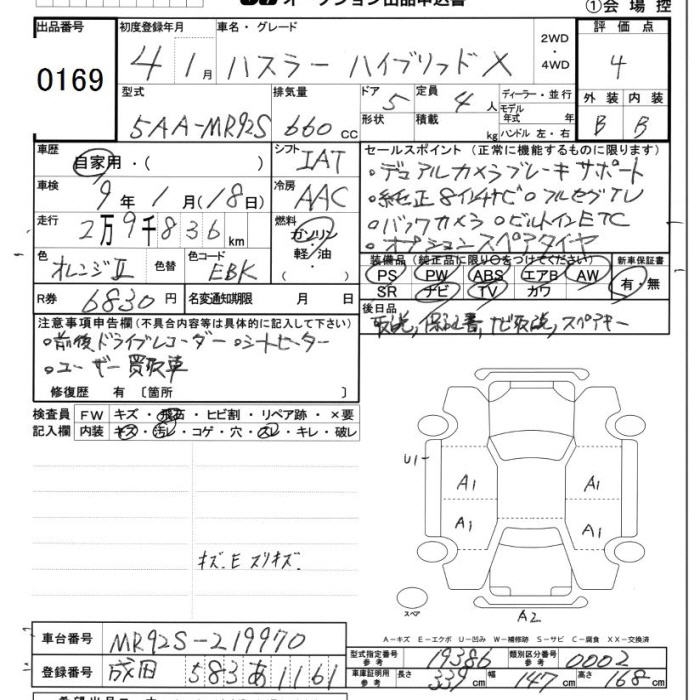 オークション出品申込書
①会場控
出品番号 初度登録年月 車名・グレード 評価点
0169 4 1月 ハスラー ハイブリッドX 2WD・4WD 4
型式 排気量 ドア 定員 ディーラー・並行 外装 内装
5AA-MR92S 660cc 5 4人 モデル年式 年 B B
形状 積載 kg ハンドル 左・右
車歴 自家用・( ) シフト IAT セールスポイント (正常に機能するものに限ります)
・デュアルカメラブレーキサポート
車検 9年1月(18日) 冷房 AAC ・純正8インチナビ・フルセグTV
走行 2万9千836km 燃料 ガソリン・軽油・( ) ・バックカメラ・ビルトインETC
・オプションスペアタイヤ
色 オレンジⅡ 色替 色コード EBK 装備品 (純正品に限り○をつけてください) 新車保証書
PS PW ABS エアB AW 有・無
SR ナビ TV カワ
R券 6830円 名変通知期限 月 日 後日品
取説, 保証書, ナビ取説, スペアキー
注意事項申告欄 (不具合内容等は具体的に記入して下さい)
・前後ドライブレコーダー ・シートヒーター
・ユーザー買取車
修復歴 有 〔箇所 〕
検査員 FW キズ・飛石・ヒビ割・リペア跡・×要
記入欄 内装 キズ・汚レ・コゲ・穴・スレ・キレ・破レ
U1
A1 A1
A1 A1
キズ.E スリキズ.
スペア
A2
A－キズ E－エクボ U－凹み W－補修跡 S－サビ C－腐食 XX－交換済
車台番号 MR92S-219970
型式指定番号 参考 19386 類別区分番号 参考 0002
登録番号 成田 583 あ 1161
車庫証明用 参考 長さ 339cm 幅 147cm 高さ 168cm